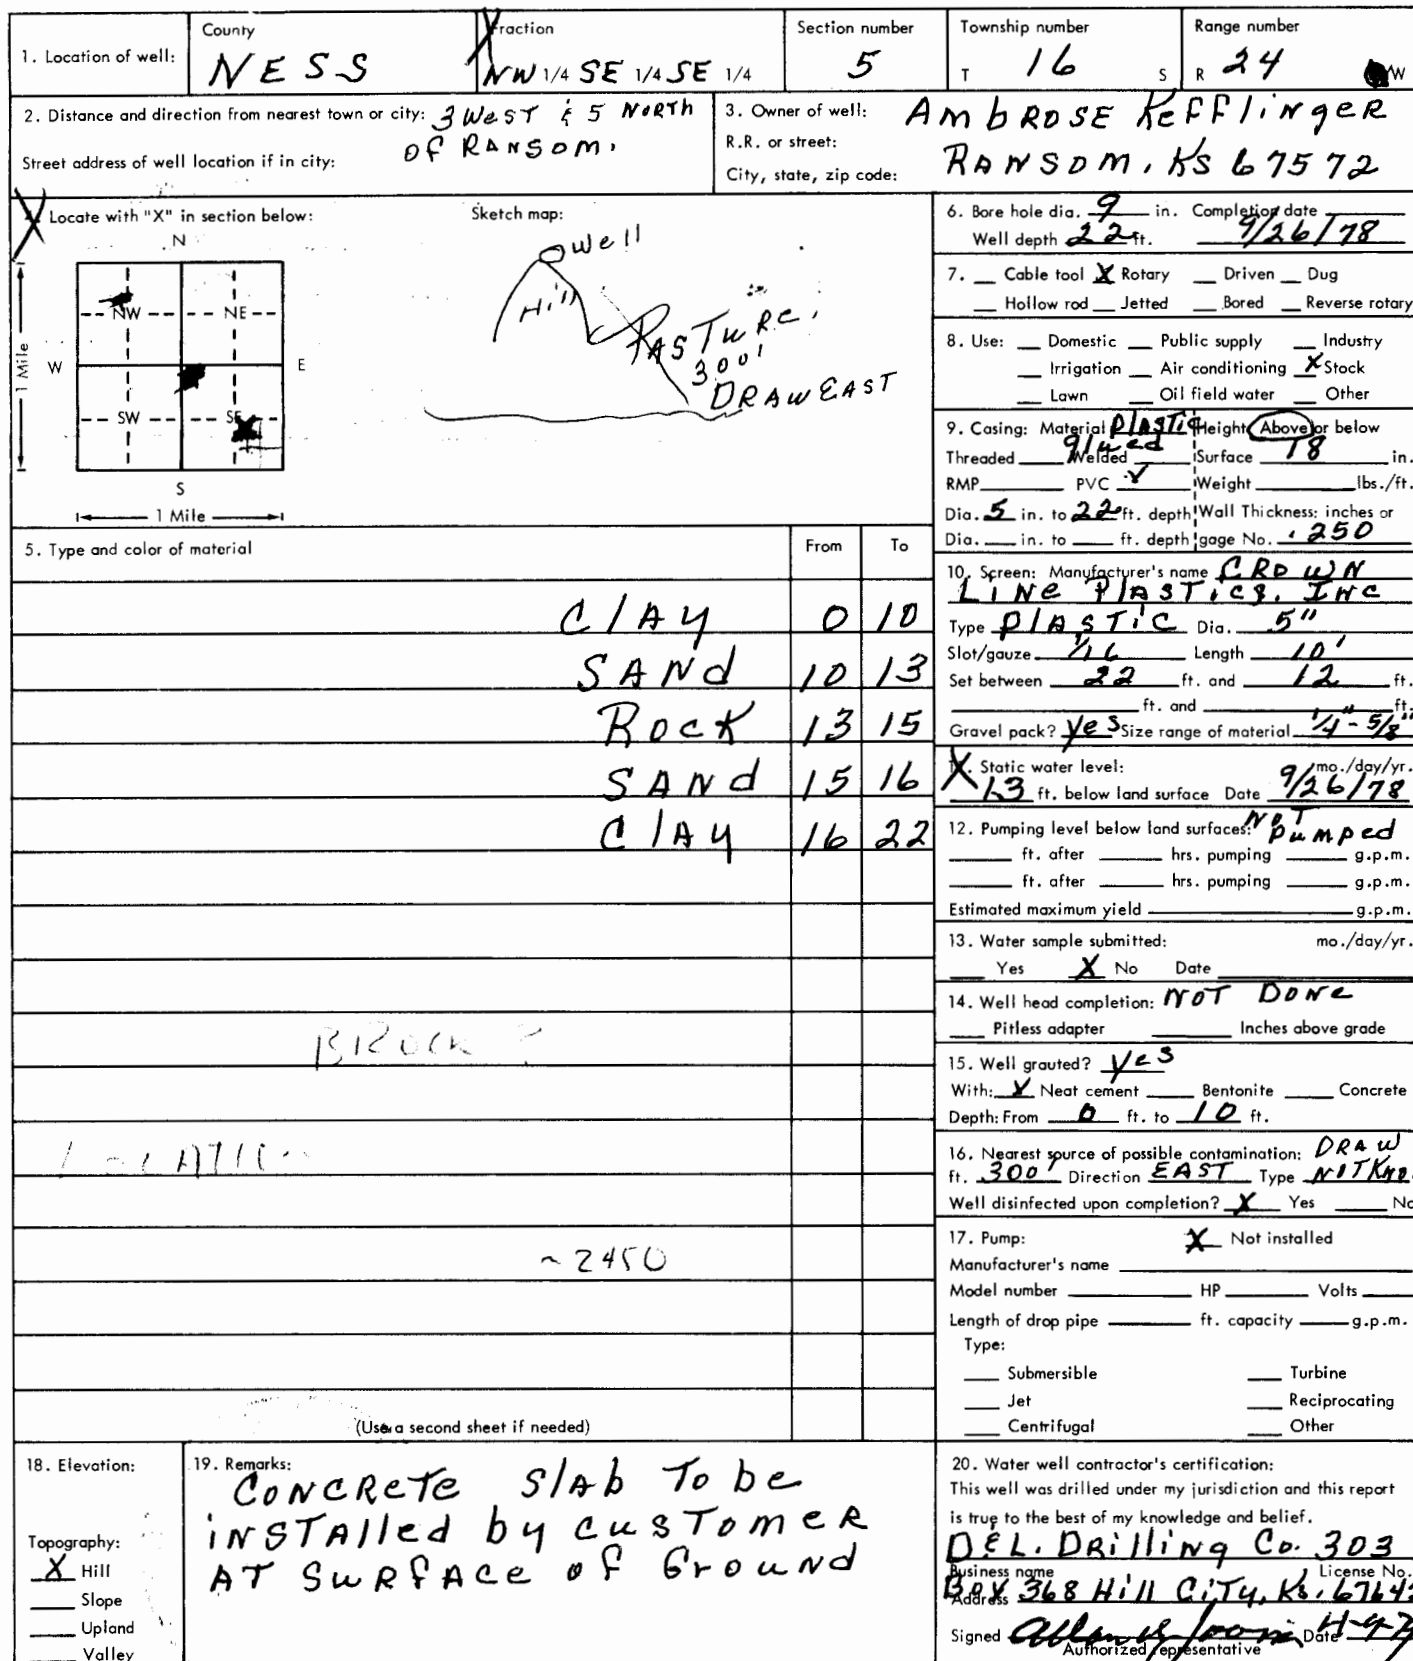 1. Location of well:
County
NESS
Fraction
NW 1/4 SE 1/4 SE 1/4
Section number
5
Township number
T 16 S
Range number
R 24 W
2. Distance and direction from nearest town or city: 3 WEST & 5 NORTH
OF RANSOM.
Street address of well location if in city:
3. Owner of well: AMBROSE KEFFLINGER
R.R. or street:
City, state, zip code: RANSOM, KS 67572
Locate with "X" in section below:
N
NW NE
W E
SW SE
S
1 Mile
1 Mile
Sketch map:
Well
Hill
PASTURE.
300'
DRAW EAST
5. Type and color of material From To
CLAY 0 10
SAND 10 13
ROCK 13 15
SAND 15 16
CLAY 16 22
~2450
(Use a second sheet if needed)
6. Bore hole dia. 9 in. Completion date
Well depth 22 ft. 9/26/78
7. __ Cable tool X Rotary __ Driven __ Dug
__ Hollow rod __ Jetted __ Bored __ Reverse rotary
8. Use: __ Domestic __ Public supply __ Industry
__ Irrigation __ Air conditioning X Stock
__ Lawn __ Oil field water __ Other
9. Casing: Material PLASTIC Height: Above or below
Threaded ____ glued Welded ____ Surface 18 in.
RMP ____ PVC ✓ Weight ____ lbs./ft.
Dia. 5 in. to 22 ft. depth Wall Thickness: inches or
Dia. ___ in. to ___ ft. depth gage No. .250
10. Screen: Manufacturer's name CROWN
LINE PLASTICS, INC
Type PLASTIC Dia. 5"
Slot/gauze 1/16 Length 10'
Set between 22 ft. and 12 ft.
____ ft. and ____ ft.
Gravel pack? yes Size range of material 1/4" - 5/8"
Static water level: mo./day/yr.
13 ft. below land surface Date 9/26/78
12. Pumping level below land surfaces: NOT Pumped
____ ft. after ____ hrs. pumping ____ g.p.m.
____ ft. after ____ hrs. pumping ____ g.p.m.
Estimated maximum yield ____ g.p.m.
13. Water sample submitted: mo./day/yr.
__ Yes X No Date ____
14. Well head completion: NOT DONE
__ Pitless adapter ____ Inches above grade
15. Well grouted? yes
With: X Neat cement ____ Bentonite ____ Concrete
Depth: From 0 ft. to 10 ft.
16. Nearest source of possible contamination: DRAW
ft. 300' Direction EAST Type
Well disinfected upon completion? X Yes ____ No
17. Pump: X Not installed
Manufacturer's name ____
Model number ____ HP ____ Volts ____
Length of drop pipe ____ ft. capacity ____ g.p.m.
Type:
__ Submersible __ Turbine
__ Jet __ Reciprocating
__ Centrifugal __ Other
18. Elevation:
Topography:
X Hill
__ Slope
__ Upland
__ Valley
19. Remarks:
CONCRETE SLAB TO BE
INSTALLED BY CUSTOMER
AT SURFACE OF GROUND
20. Water well contractor's certification:
This well was drilled under my jurisdiction and this report
is true to the best of my knowledge and belief.
D&L. DRILLING CO. 303
Business name License No.
Address Box 368 HILL CITY, KS.
Signed Date
Authorized representative